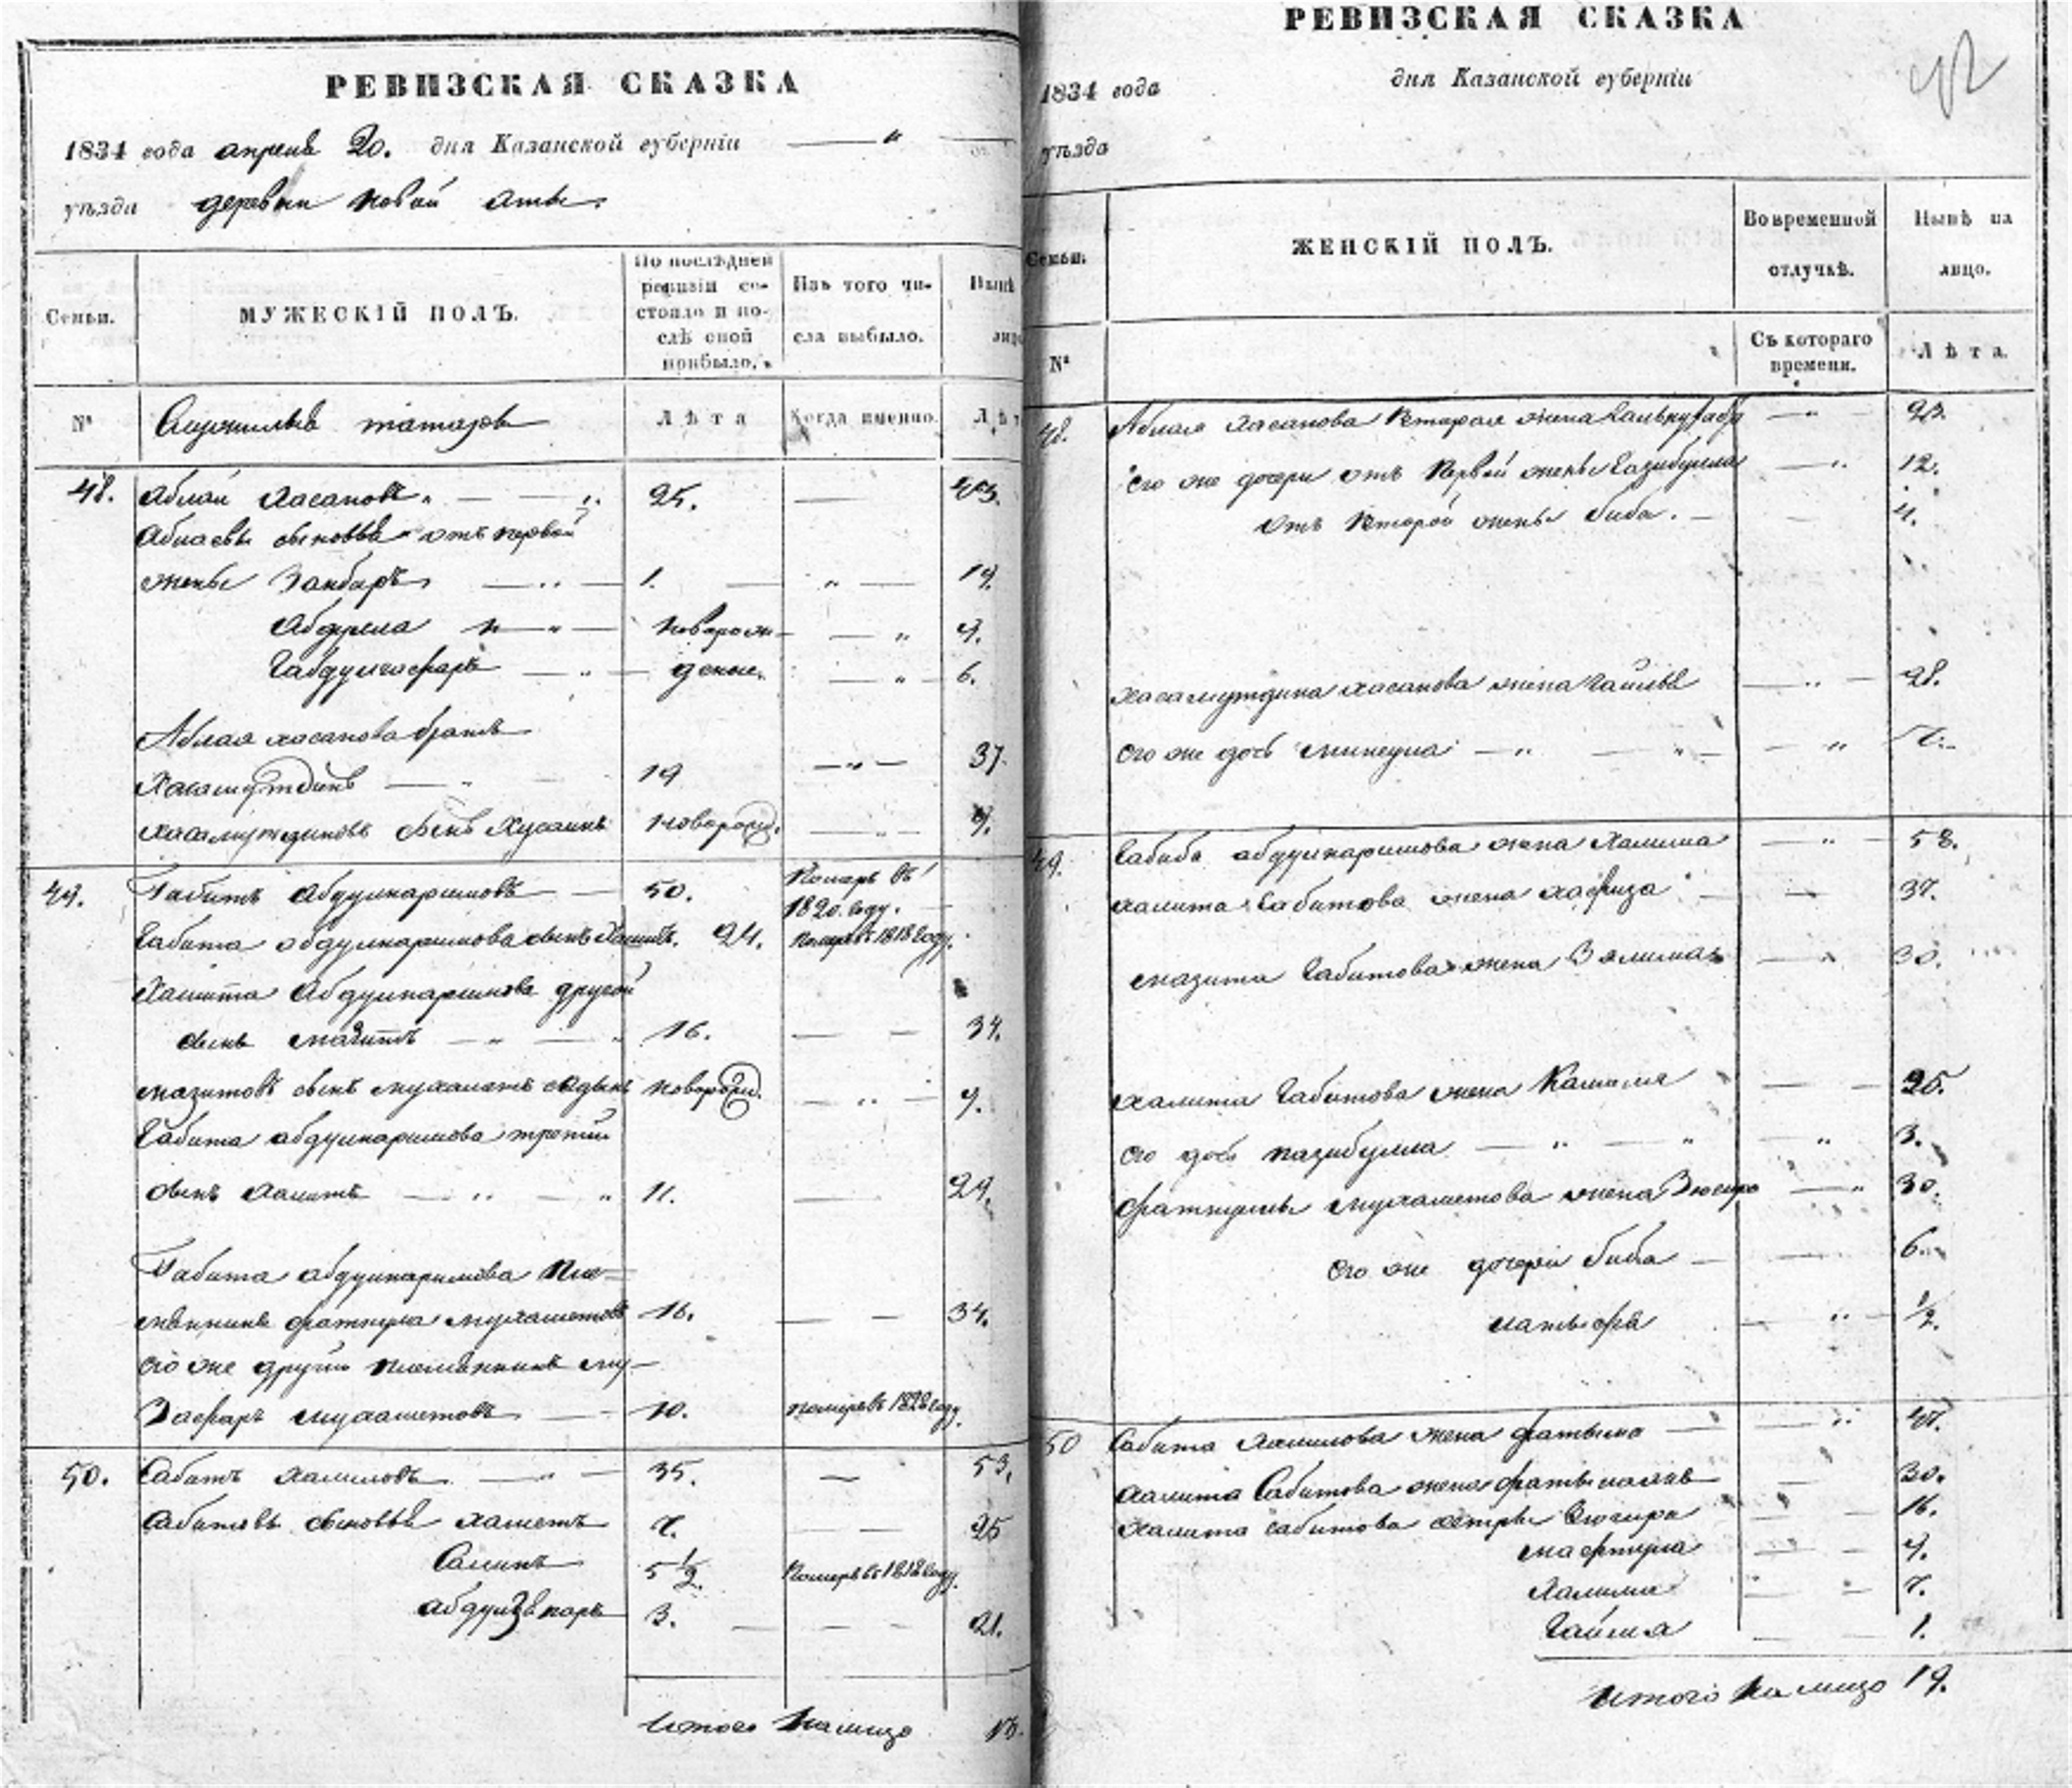 РЕВИЗСКАЯ СКАЗКА
1834 года апреля 20. дня Казанской губерніи — „ —
уѣзда деревни новой аты
Семьи.
МУЖЕСКІЙ ПОЛЪ.
По послѣдней ревизіи состояло и послѣ оной прибыло.
Изъ того числа выбыло.
Нынѣ лицо
№
Служилыхъ татаръ
Лѣта
Когда именно.
Лѣт
48. Аблай Хасановъ 25. — 43.
Аблаевы сыновья отъ первой
жены Занбаръ 1. — 19.
Абдулла новорож- — 9.
Габдулгафаръ денные. — 6.
Аблая хасанова братъ
Хасамутдинъ 19 — 37.
Хасамутдиновъ сынъ Хусаинъ новорожд. — 9.
49. Габитъ Абдулкаримовъ 50. Померъ въ 1820. году.
Габита абдулкаримова сынъ Хамитъ. 24. померъ въ 1818 году.
Хамита Абдулкаримова другой
сынъ мазитъ 16. — 34.
мазитовъ сынъ мухаметъ новорожд. — 9.
Габита абдулкаримова третій
сынъ Хамитъ 11. — 29.
Габита абдулкаримова пле-
мянникъ фаткулла мухаметовъ 16. — 34.
его же другій племянникъ му-
Зафаръ мухаметовъ 10. померъ въ 1828 году.
50. Сабитъ халиловъ 35. — 53.
Сабитовы сыновья хаметъ 7. — 25
Салихъ 5 1/2. Померъ въ 1818 году.
абдулзѣпаръ 3. — 21.
Итого налицо 13.
РЕВИЗСКАЯ СКАЗКА
42
1834 года дня Казанской губерніи
уѣзда
Семьи.
ЖЕНСКІЙ ПОЛЪ.
Во временной отлучкѣ.
Нынѣ на лицо.
№
Съ котораго времени.
Лѣта.
48. Аблая хасанова вторая жена 23.
его же дочери отъ первой жены Газибулла 12.
отъ второй жены биба. 4.
Хасамутдина хасанова жена 28.
его же дочь
49. Габита абдулкаримова жена Халима 58.
хамита Габитова жена хафиза 37.
мазита Габитова жена Залима 30.
хамита Габитова жена Камиля 25.
его дочь назибулла 3.
фаткуллы мухаметова жена Зюгира 30.
его же дочери биба 6.
латыфа 1/2.
50 Сабита халилова жена фатыма 47.
хамита Сабитова жена 30.
хамита сабитова сестры Зюгира 16.
мафтула 9.
Халима 7.
Гайша 1.
Итого на лицо 19.